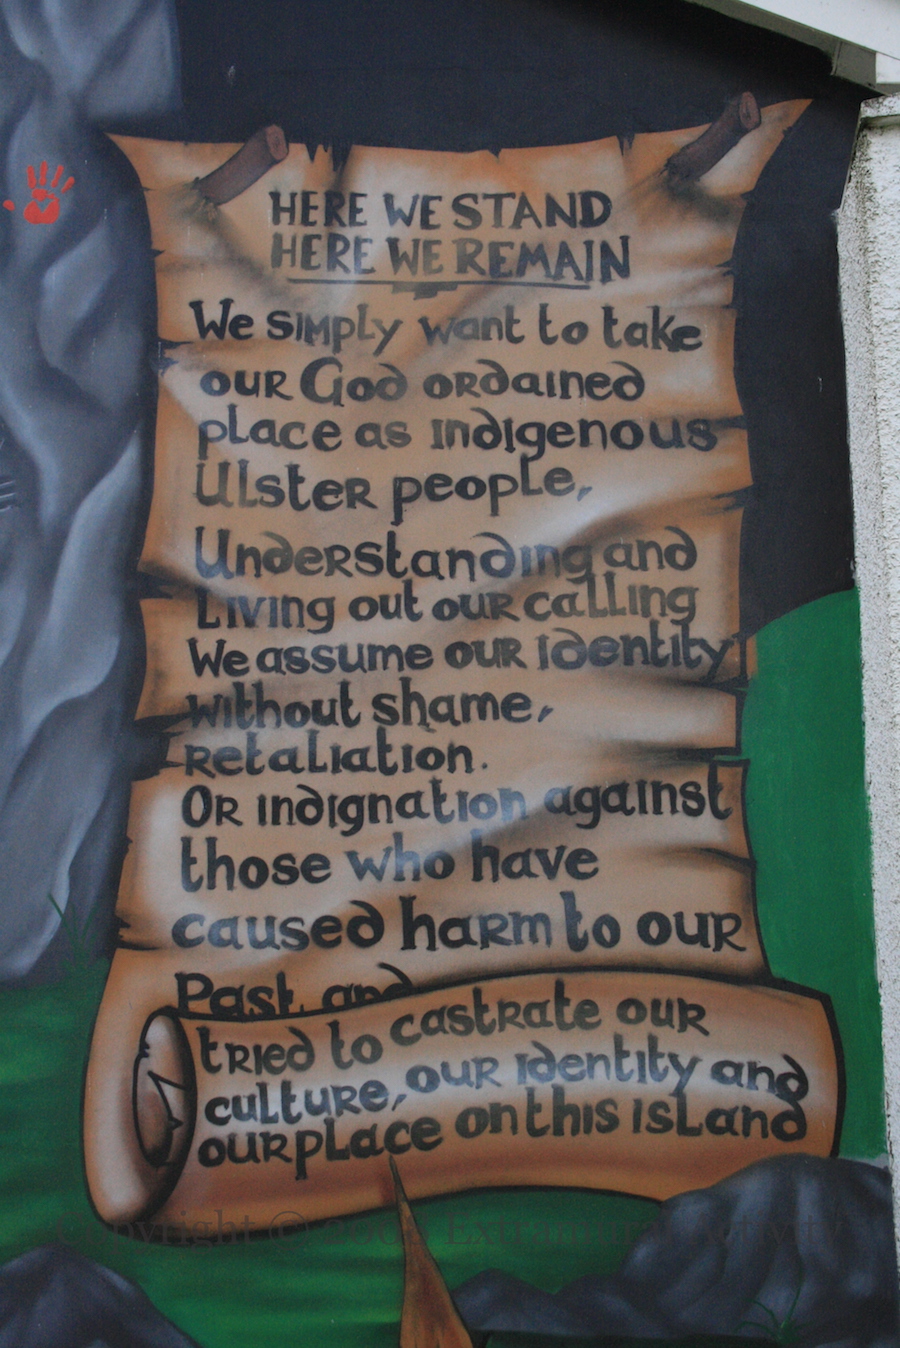 HERE WE STAND
HERE WE REMAIN
We simply want to take
our God ordained
place as indigenous
Ulster people,
Understanding and
Living out our calling
We assume our identity
without shame,
retaliation.
Or indignation against
those who have
caused harm to our
Past, and
tried to castrate our
culture, our identity and
our place on this island
Copyright © 2008 Extramural Activity